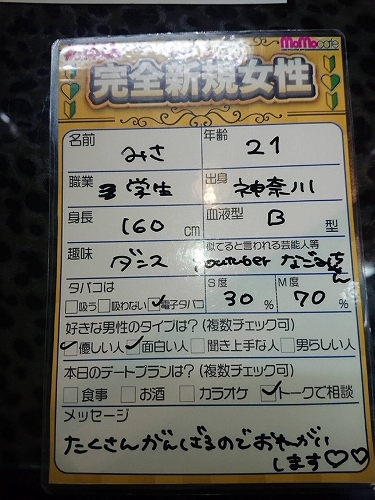 MoMocafe
完全新規女性
名前 みさ 年齢 21
職業 学生 出身 神奈川
身長 160 cm 血液型 B 型
趣味 ダンス 似てると言われる芸能人等
youtuber
タバコは S度 M度
吸う 吸わない 電子タバコ 30 % 70 %
好きな男性のタイプは?(複数チェック可)
優しい人 面白い人 聞き上手な人 男らしい人
本日のデートプランは?(複数チェック可)
食事 お酒 カラオケ トークで相談
メッセージ
たくさんがんばるのでおねがい
します♡♡